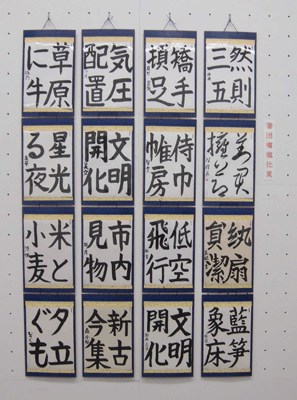 然則
三五
矯手
頓足
気圧
配置
草原
に牛
侍巾
帷房
文明
開化
星光
る夜
紈扇
員潔
低空
飛行
市内
見物
米と
小麦
藍笋
象床
文明
開化
新古
今集
夕立
ぐも